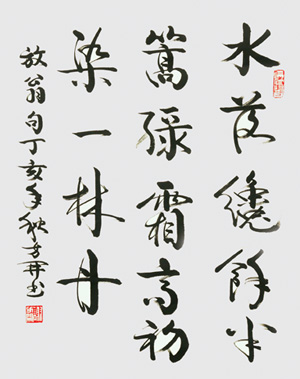 水落纔餘半
篙綠霜高初
染一林丹
放翁句丁亥年秋